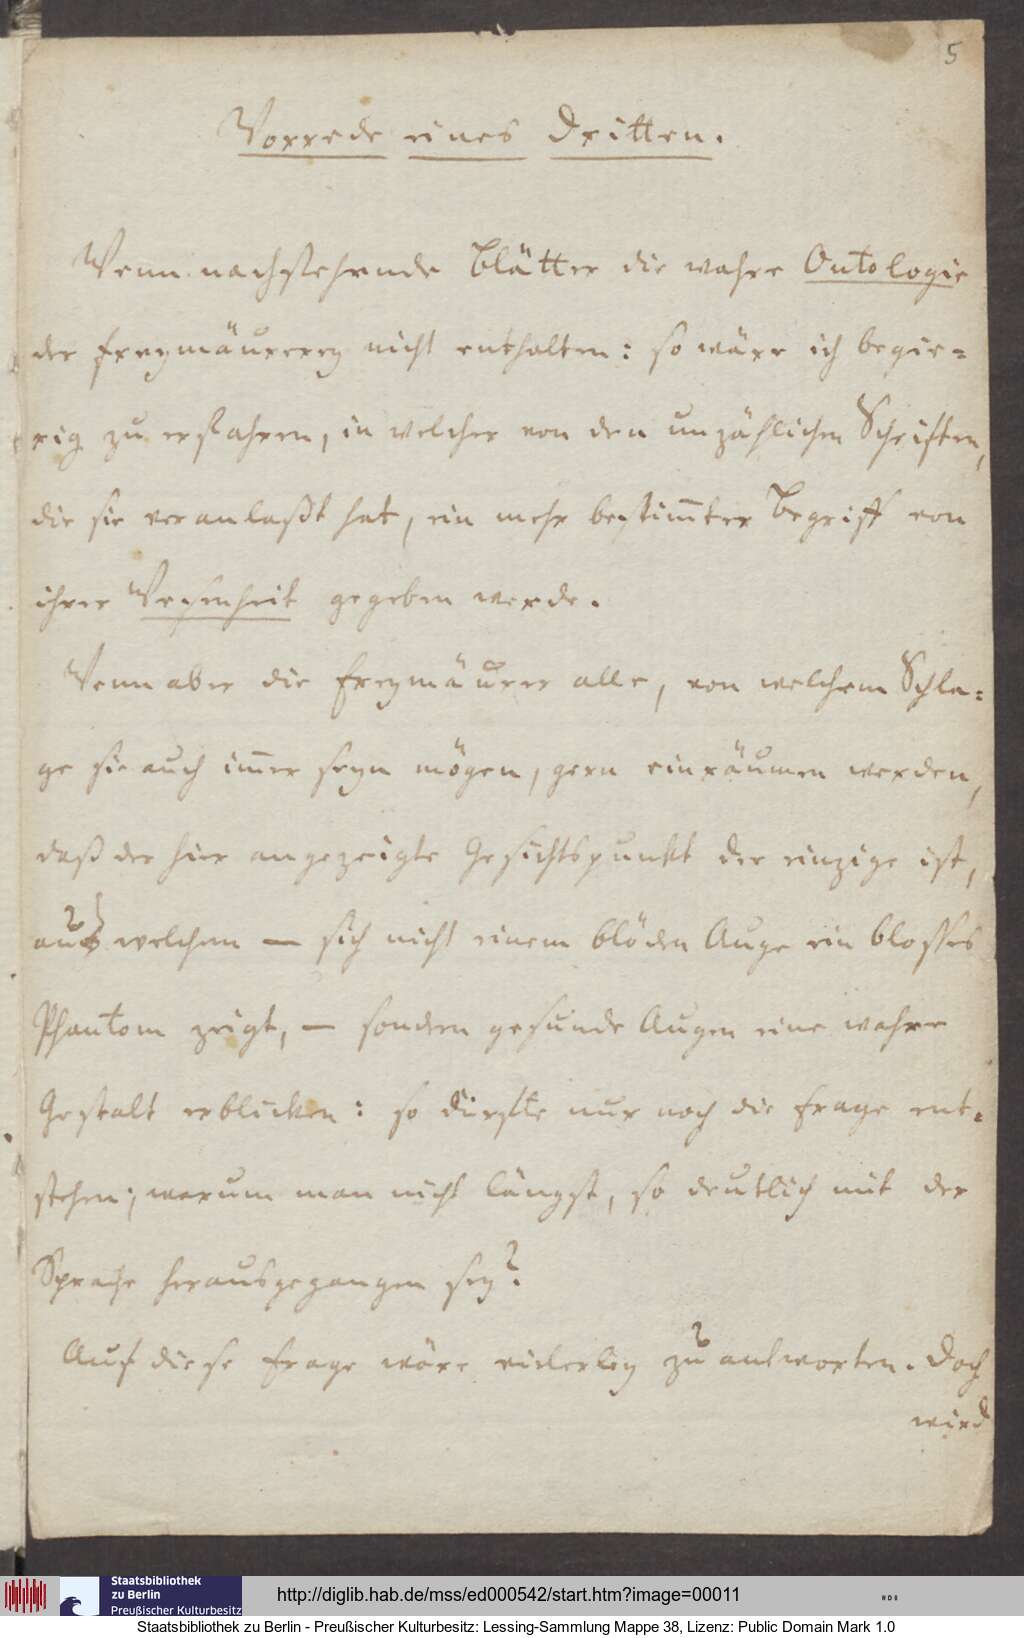 5
Vorrede eines Dritten.
Wenn nachstehende Blätter die wahre Ontologie
der Freymäurerey nicht enthalten: so wäre ich begie=
rig zu erfahren, in welcher von den unzählichen Schriften,
die sie veranlaßt hat, ein mehr bestimmter Begriff von
ihrer Wesenheit gegeben werde.
Wenn aber die Freymäurer alle, von welchem Schla=
ge sie auch immer seyn mögen, gern einräumen werden,
daß der hier angezeigte Gesichtspunkt der einzige ist,
aus welchem — sich nicht einem blöden Auge ein blosses
Phantom zeigt, — sondern gesunde Augen eine wahre
Gestalt erblicken: so dürfte nur noch die Frage ent=
stehen; warum man nicht längst, so deutlich mit der
Sprache herausgegangen sey?
Auf diese Frage wäre vielerley zu antworten. Doch
wird
Staatsbibliothek
zu Berlin
Preußischer Kulturbesitz
http://diglib.hab.de/mss/ed000542/start.htm?image=00011
Staatsbibliothek zu Berlin - Preußischer Kulturbesitz: Lessing-Sammlung Mappe 38, Lizenz: Public Domain Mark 1.0